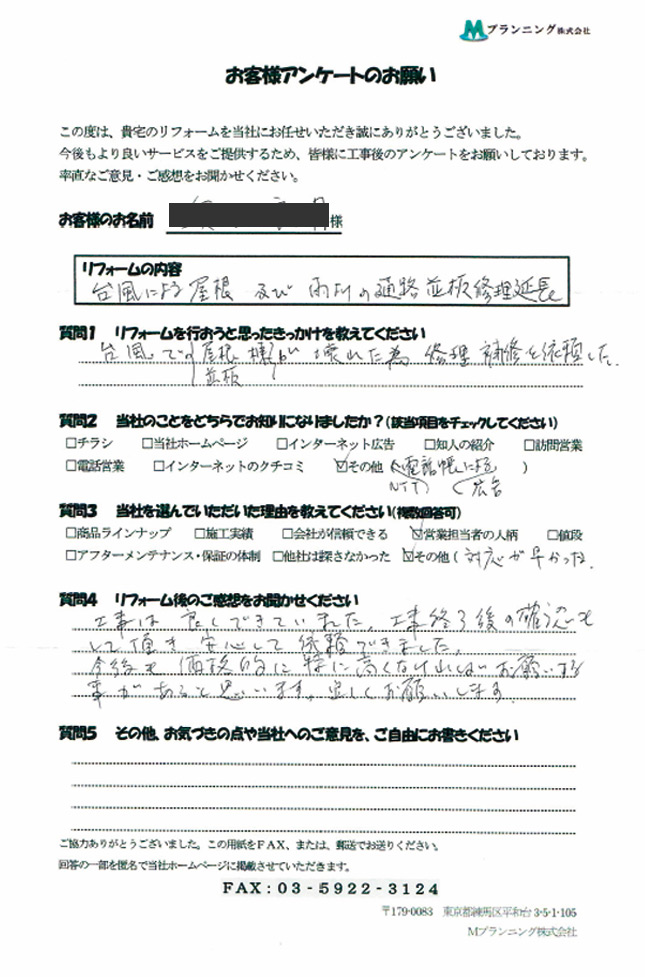 Mプランニング株式会社
お客様アンケートのお願い
この度は、貴宅のリフォームを当社にお任せいただき誠にありがとうございました。
今後もより良いサービスをご提供するため、皆様に工事後のアンケートをお願いしております。
率直なご意見・ご感想をお聞かせください。
お客様のお名前 様
リフォームの内容
台風による屋根 及び 雨よけの通路並板修理延長
質問1 リフォームを行おうと思ったきっかけを教えてください
台風での屋根 が壊れた為 修理 補修を依頼した.
並板
質問2 当社のことをどちらでお知りになりましたか?(該当項目をチェックしてください)
□チラシ □当社ホームページ □インターネット広告 □知人の紹介 □訪問営業
□電話営業 □インターネットのクチコミ ☑その他(電話帳による )
NTT) (広告
質問3 当社を選んでいただいた理由を教えてください(複数回答可)
□商品ラインナップ □施工実績 □会社が信頼できる ☑営業担当者の人柄 □値段
□アフターメンテナンス・保証の体制 □他社は探さなかった ☑その他(対応が早かった.
質問4 リフォーム後のご感想をお聞かせください
工事は良くできていました。工事終了後の確認も
して頂き安心して依頼できました。
今後も価格的に特に高くなければお願いする
事があると思います。宜しくお願いします.
質問5 その他、お気づきの点や当社へのご意見を、ご自由にお書きください
ご協力ありがとうございました。この用紙をFAX、または、郵送でお送りください。
回答の一部を匿名で当社ホームページに掲載させていただきます。
FAX:03-5922-3124
〒179-0083 東京都練馬区平和台3-5-1-105
Mプランニング株式会社